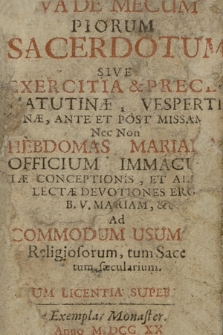 VADE MECUM
PIORUM
SACERDOTUM
SIVE
EXERCITIA & PRECE
MATUTINÆ, VESPERTI
NÆ, ANTE ET POST MISSAM
Nec Non
HEBDOMAS MARIAN
OFFICIUM IMMACU
LÆ CONCEPTIONIS, ET AL
LECTÆ DEVOTIONES ERG
B. V. MARIAM, &c
Ad
COMMODUM USUM
Religiosorum, tum Sace
tum sæcularium.
UM LICENTIA SUPER
Exemplar Monaster.
Anno M.DCC XX